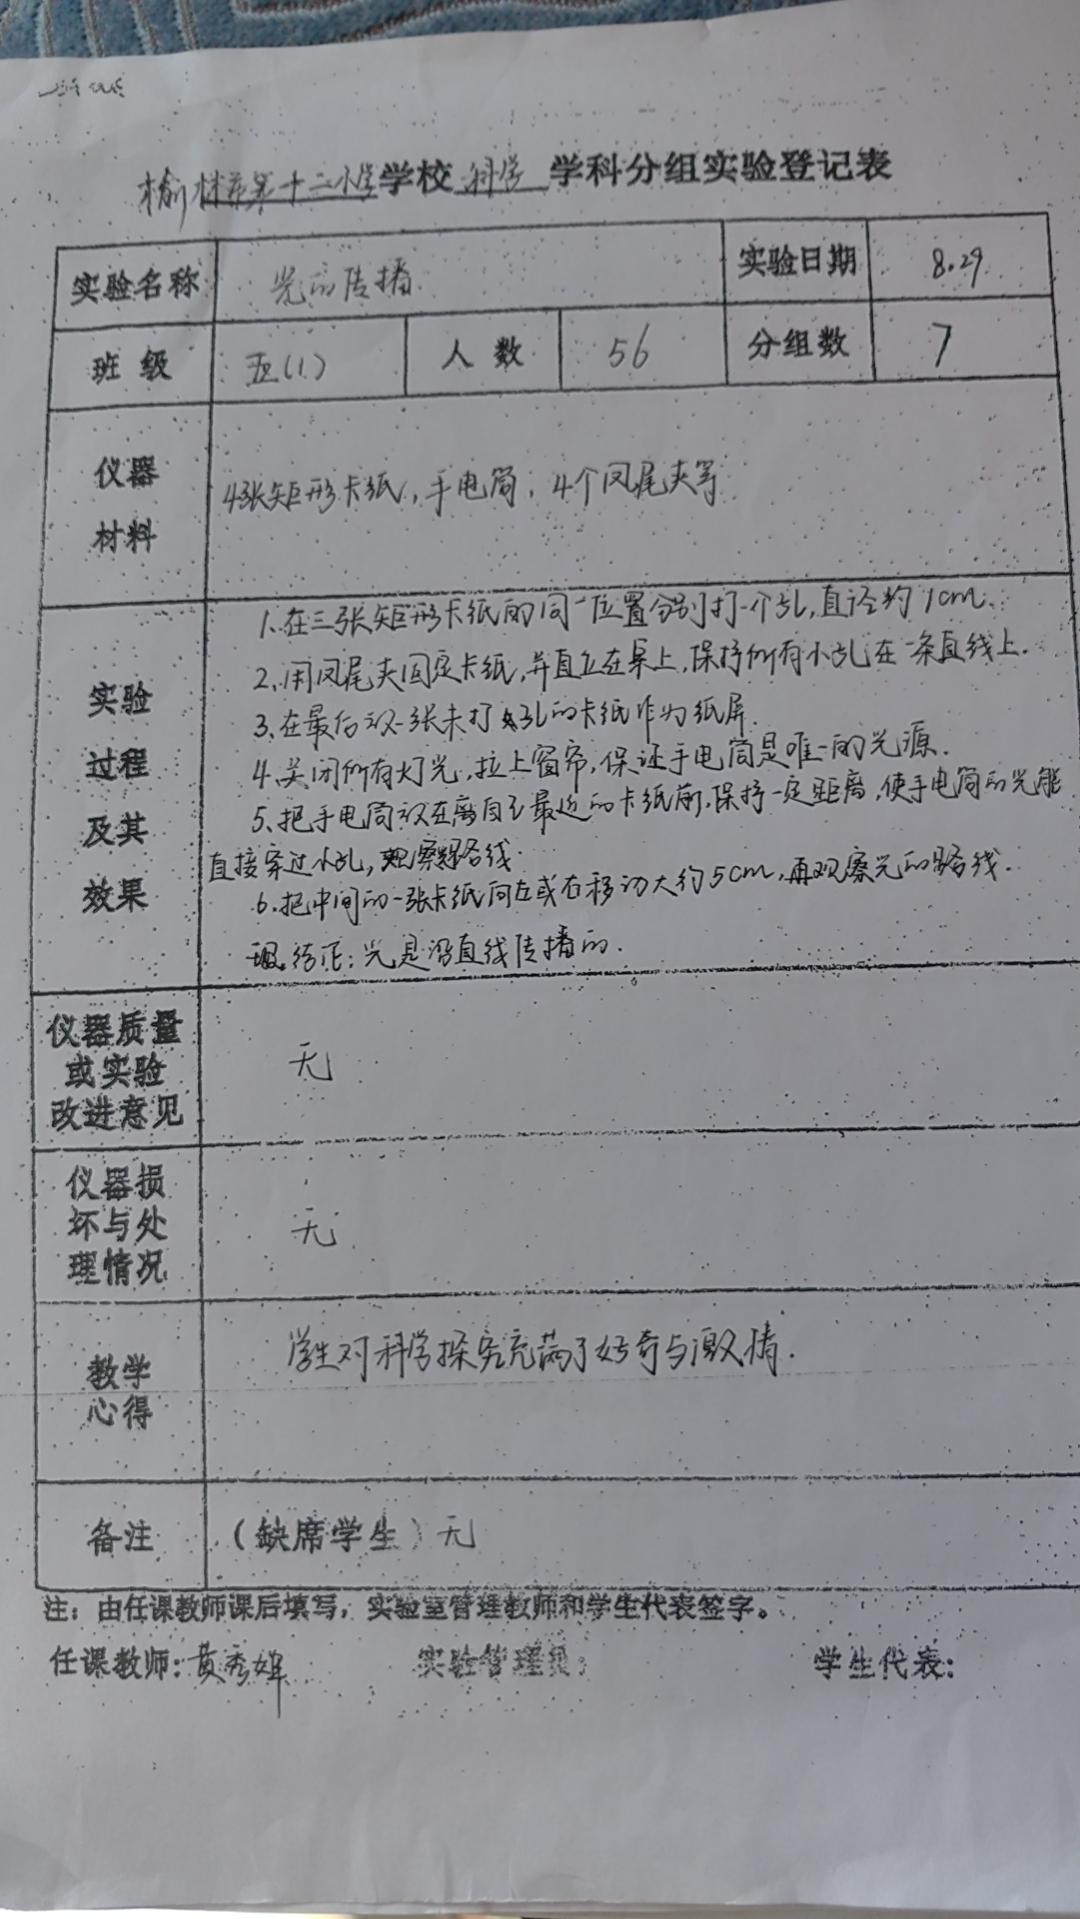 榆林市第十二小学学校 科学 学科分组实验登记表
实验名称 光的传播 实验日期 8.29
班级 五(1) 人数 56 分组数 7
仪器
材料
4张矩形卡纸,手电筒,4个凤尾夹等
实验
过程
及其
效果
1.在三张矩形卡纸的同一位置分别打一个孔,直径约1cm.
2.用凤尾夹固定卡纸,并直立在桌上,保持所有小孔在一条直线上.
3.在最后放一张未打孔的卡纸作为纸屏.
4.关闭所有灯光,拉上窗帘,保证手电筒是唯一的光源.
5.把手电筒放在离自己最近的卡纸前,保持一定距离,使手电筒的光能
直接穿过小孔,观察路线.
6.把中间的一张卡纸向左或右移动大约5cm,再观察光的路线.
结论:光是沿直线传播的.
仪器质量
或实验
改进意见
无
仪器损
坏与处
理情况
无
教学
心得
学生对科学探究充满了好奇与激情.
备注 (缺席学生)无
注:由任课教师课后填写,实验室管理教师和学生代表签字。
任课教师:黄秀娥 实验管理员: 学生代表: